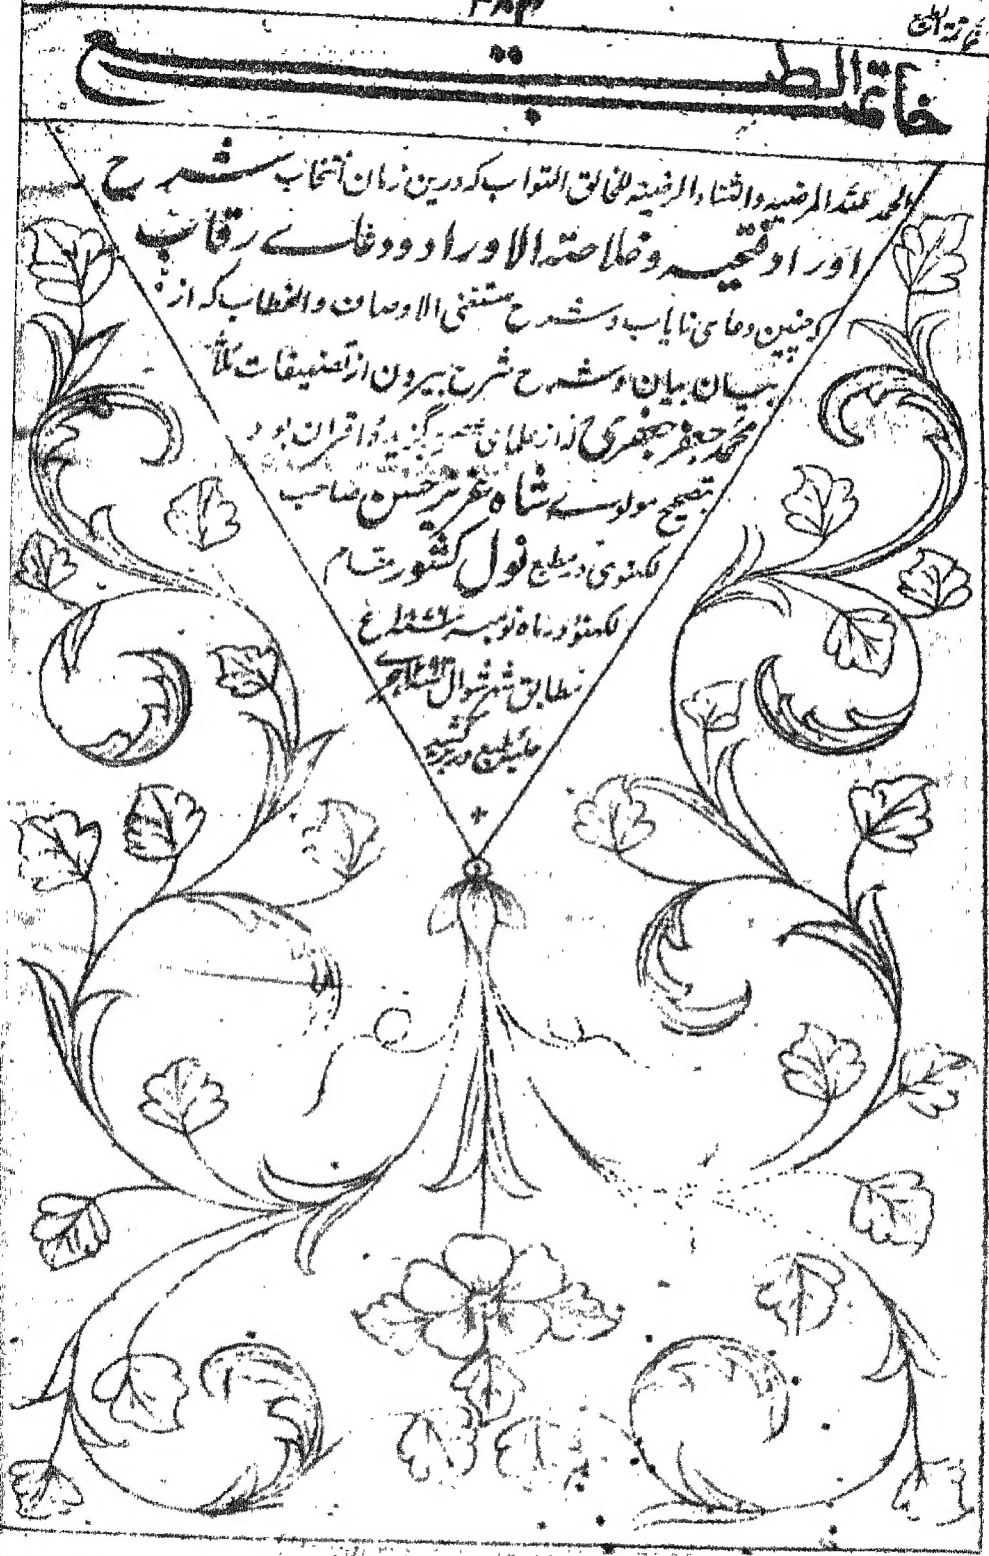 خاتمة الطبع
خاتمة الطبع
الحمد المرضیه والثناء الرضیه للخالق التواب که درین زمان انتخاب شرح
اوراد فتحیه و خلاصة الاوراد و دعای رقاب
که چنین دعای نایاب و شرح مستغنی الاوصاف والخطاب که از
بیان و شرح شرح بیرون از تصنیفات
محمد جعفر جعفری از علمای گزیده اقران بود
بتصحیح مولوی شاه عزیز حسن صاحب
لکهنوی در مطبع نول کشور مقام
لکهنؤ در ماه نومبر
مطابق شهر شوال هجری